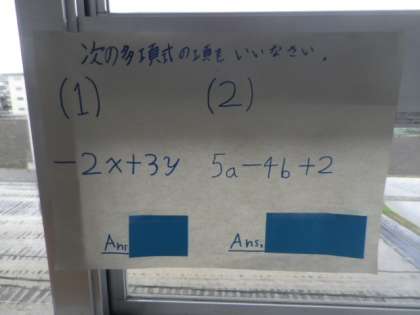 次の多項式の項をいいなさい。
(1) (2)
-2x+3y 5a-4b+2
Ans. Ans.